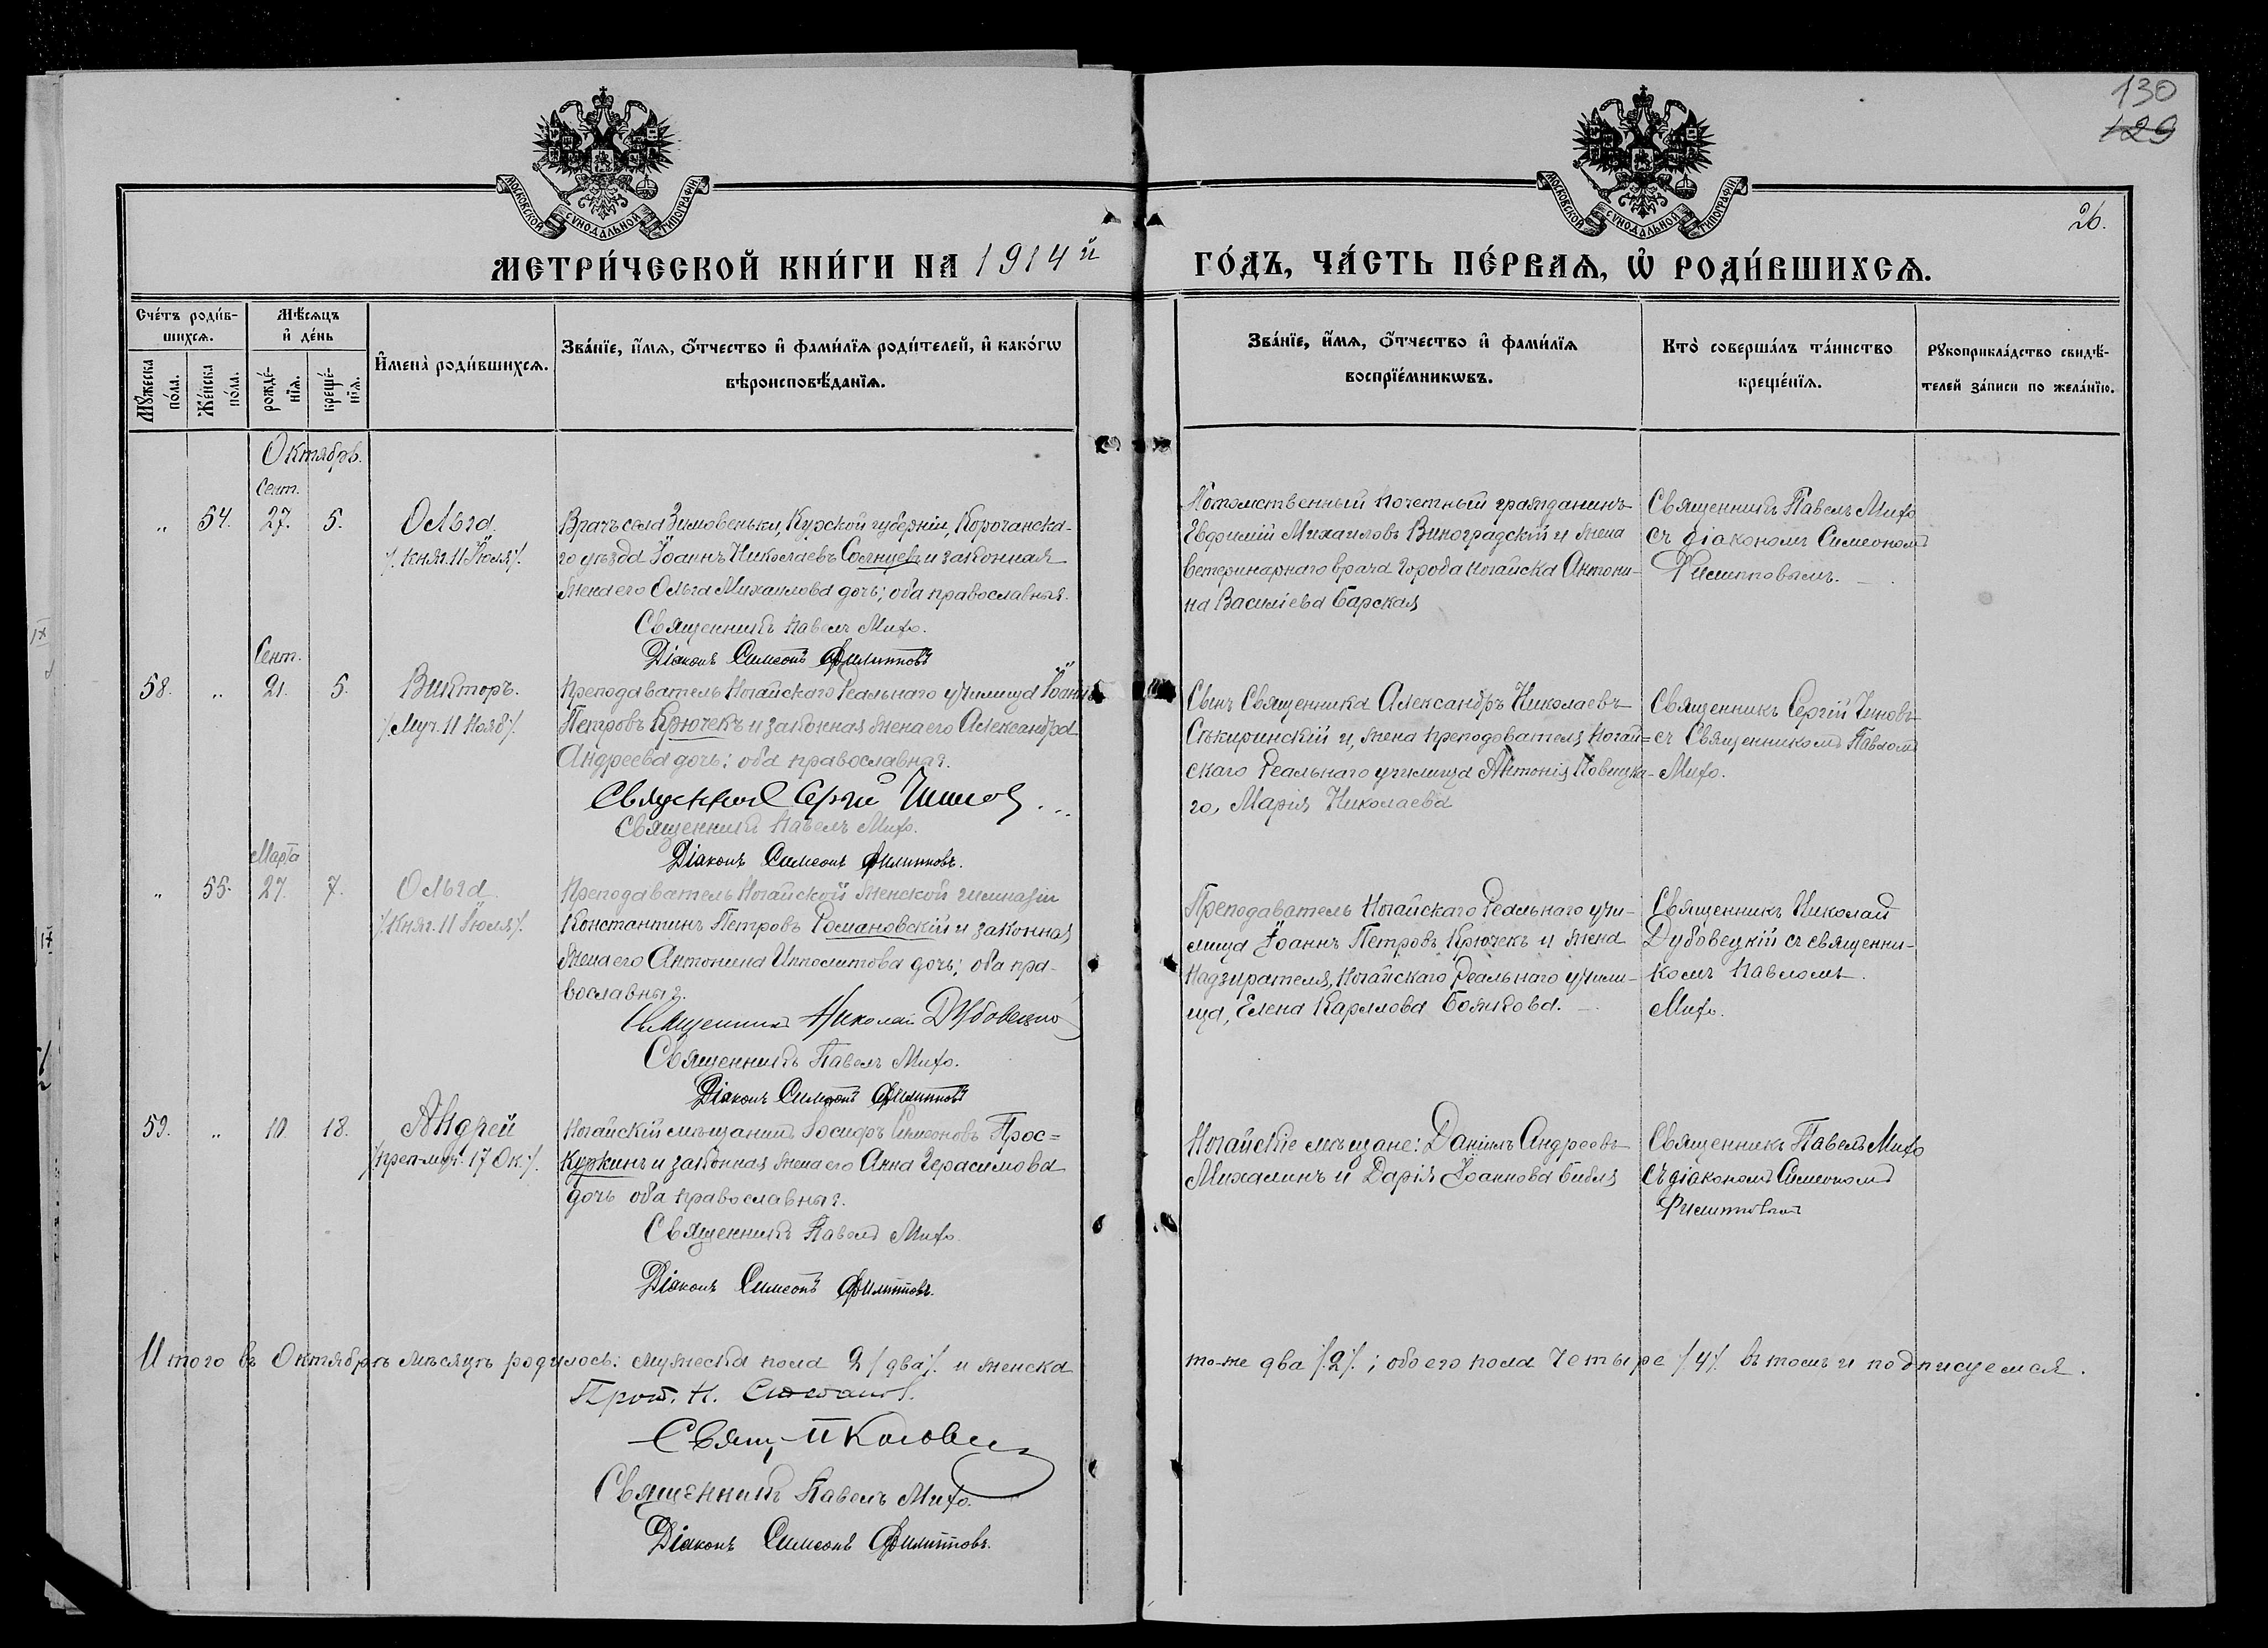 130
129
26.
МОСКОВСКОЙ СѴНОДАЛЬНОЙ ТИПОГРАФІИ
МОСКОВСКОЙ СѴНОДАЛЬНОЙ ТИПОГРАФІИ
МЕТРИ́ЧЕСКОЙ КНИ́ГИ НА 1914 й
ГО́ДЪ, ЧА́СТЬ ПЕ́РВАѦ, Ѡ҆ РОДИ́ВШИХСѦ.
Сче́тъ роди́в-
шихсѧ.
Мѣ́сѧцъ
и҆ де́нь
Мꙋ́жеска
по́ла.
Же́нска
по́ла.
рожде́-
нїѧ.
креще́-
нїѧ.
И҆мена̀ роди́вшихсѧ.
Зва́нїе, и҆́мѧ, ѻ҆́тчество и҆ фами́лїѧ роди́телей, и҆ како́гѡ
вѣроисповѣ́данїѧ.
Зва́нїе, и҆́мѧ, ѻ҆́тчество и҆ фами́лїѧ
воспрїе́мникѡвъ.
Кто̀ соверша́лъ та́инство
креще́нїѧ.
Рꙋкоприкла́дство свидѣ́-
телей за́писи по жела́нїю.
Октябрь.
Сент.
„ 54. 27. 5.
Ольга
/. княг. 11 Іюля /.
Врачъ села Зимовеньки, Курской губерніи, Корочанска-
го уѣзда Іоаннъ Николаевъ Солнцевъ и законная
жена его Ольга Михаилова дочь; оба православныя.
Священникъ Павелъ Михо.
Діаконъ Симеонъ Филипповъ
Потомственный почетный гражданинъ
Евфимій Михаиловъ Виноградскій и жена
ветеринарнаго врача города Ногайска Антони-
на Василіева Барская
Священникъ Павелъ Михо
съ діакономъ Симеономъ
Филипповымъ.
Сент.
58. „ 21. 5.
Викторъ.
/. Муч. 11 Нояб /.
Преподаватель Ногайскаго Реальнаго училища Іоаннъ
Петровъ Крючекъ и законная жена его Александра
Андреева дочь; оба православныя.
Священникъ Сергій
Священникъ Павелъ Михо.
Діаконъ Симеонъ Филипповъ.
Сынъ Священника Александръ Николаевъ
Сѣкиринскій и, жена преподавателя Ногай=
скаго Реальнаго училища Антонія
го, Марія Николаева
Священникъ Сергій
съ Священникомъ Павломъ
Михо.
Марта
„ 55. 27. 7.
Ольга
/. Княг. 11 Іюля /.
Преподаватель Ногайской женской гимназіи
Константинъ Петровъ Романовскій и законная
жена его Антонина Ипполитова дочь; оба пра-
вославныя.
Священникъ Николай Дубовецкій
Священникъ Павелъ Михо.
Діаконъ Симеонъ Филипповъ
Преподаватель Ногайскаго Реальнаго учи-
лища Іоаннъ Петровъ Крючекъ и жена
Надзирателя, Ногайскаго Реальнаго учили-
ща, Елена Карлова Божкова.
Священникъ Николай
Дубовецкій съ священни-
комъ Павломъ.
Михо.
59. „ 10. 18.
Андрей
/. преп-муч. 17 Ок. /.
Ногайскій мѣщанинъ Іосифъ Симеоновъ Прос=
куркинъ и законная жена его Анна Герасимова
дочь оба православныя.
Священникъ Павелъ Михо.
Діаконъ Симеонъ Филипповъ.
Ногайскіе мѣщане: Даніилъ Андреевъ
Михалинъ и Дарія Іоаннова Библя
Священникъ Павелъ Михо
съ діакономъ Симеономъ
Филипповымъ
Итого въ Октябрѣ мѣсяцѣ родилось: мужеска пола 2 /два/. и женска
то-же два /.2/. ; обоего пола четыре /4/. въ томъ и подписуемся.
Прот. Н.
Свящ.
Священникъ Павелъ Михо.
Діаконъ Симеонъ Филипповъ.